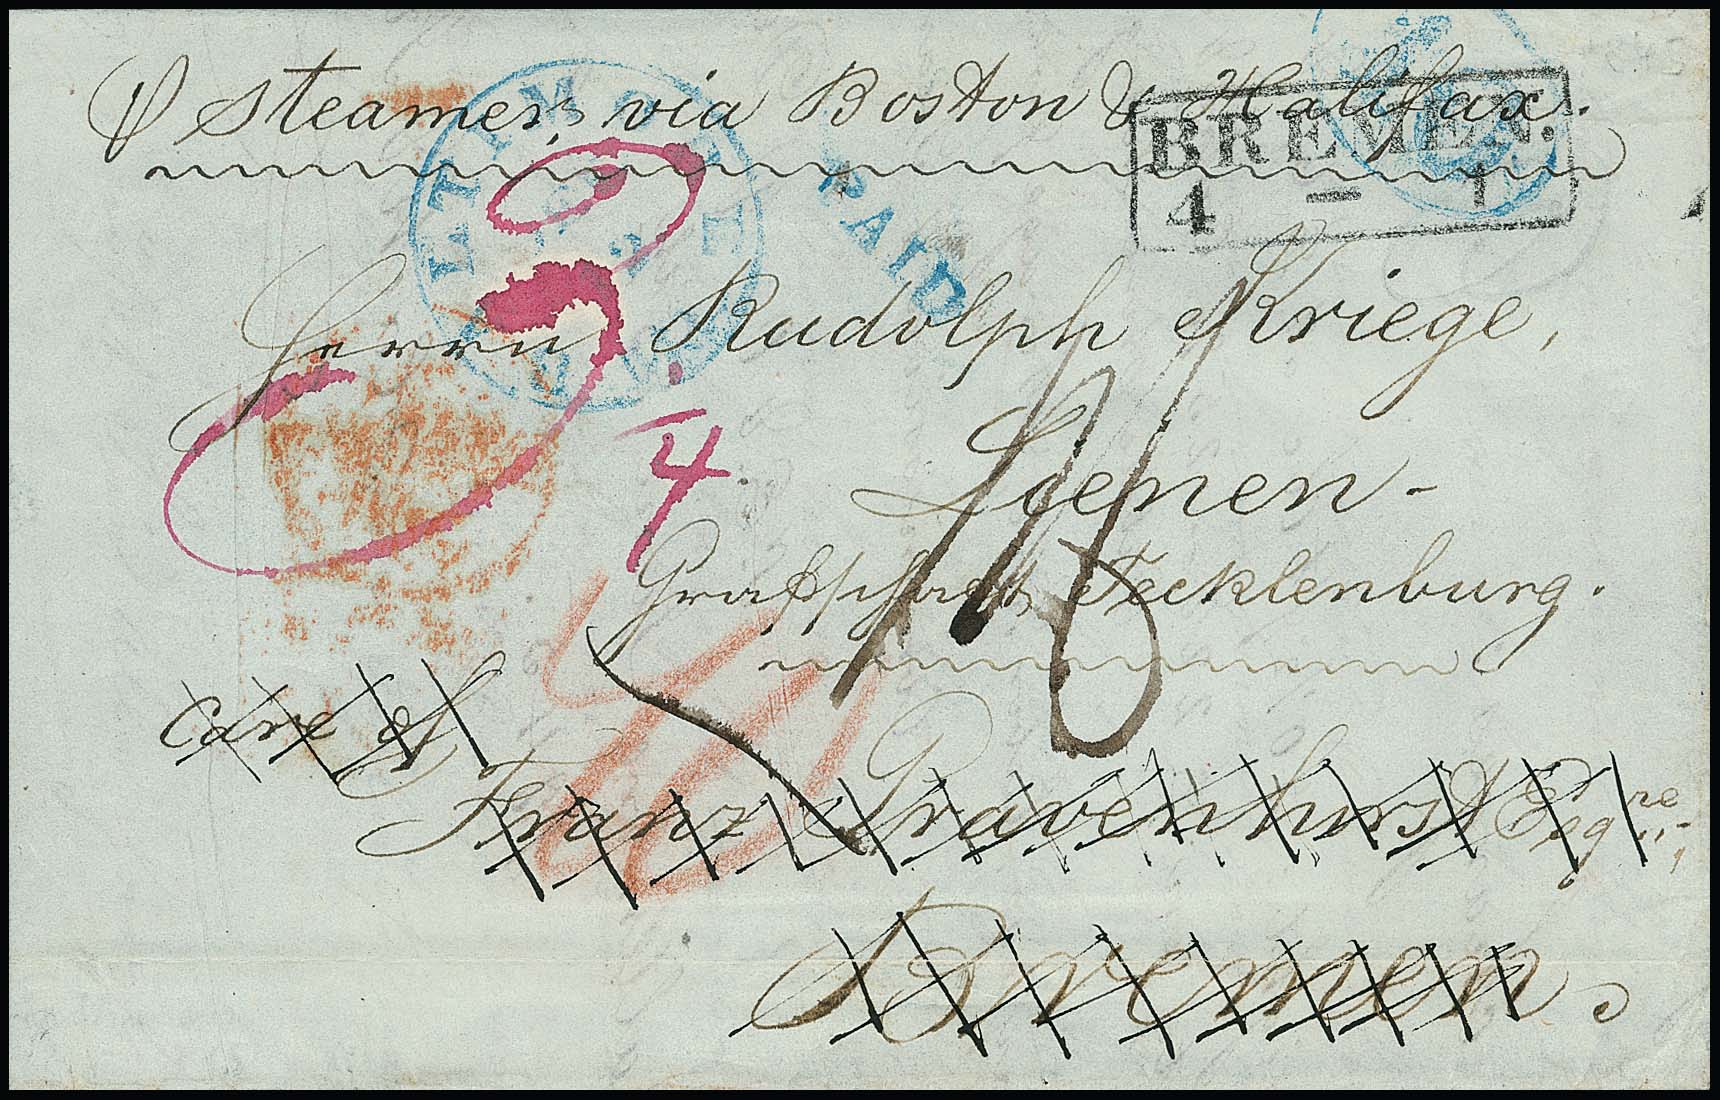 ℘ Steamer, via Boston & Halifax.
BALTIMORE
PAID
BREMEN.
4 – 1
Herrn Rudolph Kriege,
4
Lienen -
Grafschaft Tecklenburg.
care of
Franz Gravenhorst Esqre
Bremen.